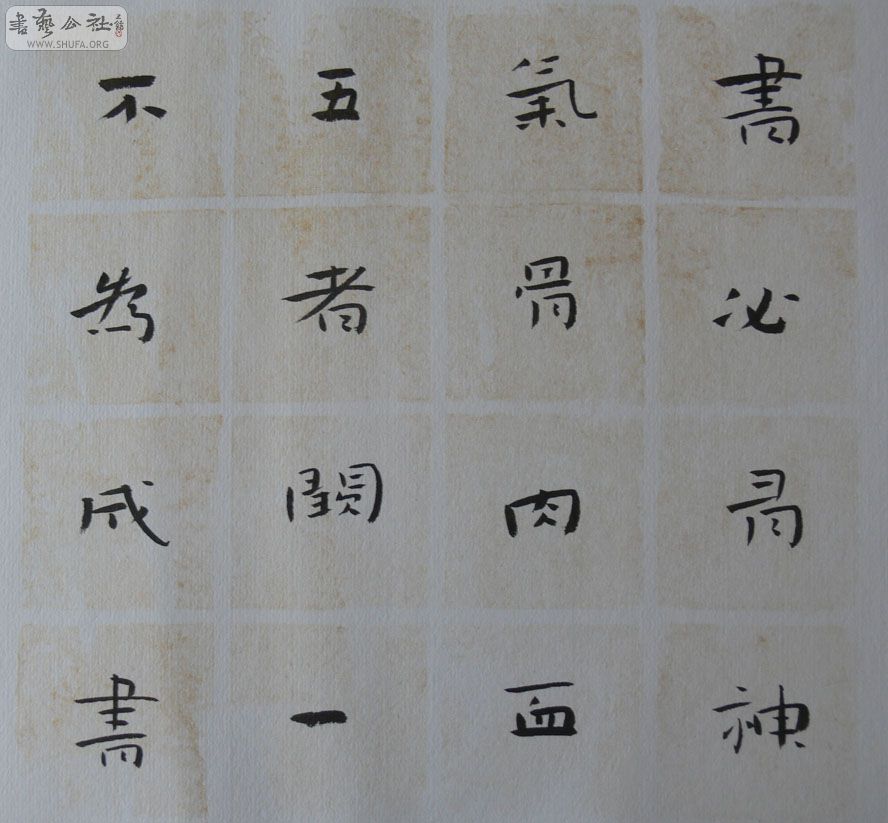 書必有神
氣骨肉血
五者闕一
不為成書
書藝公社
WWW.SHUFA.ORG